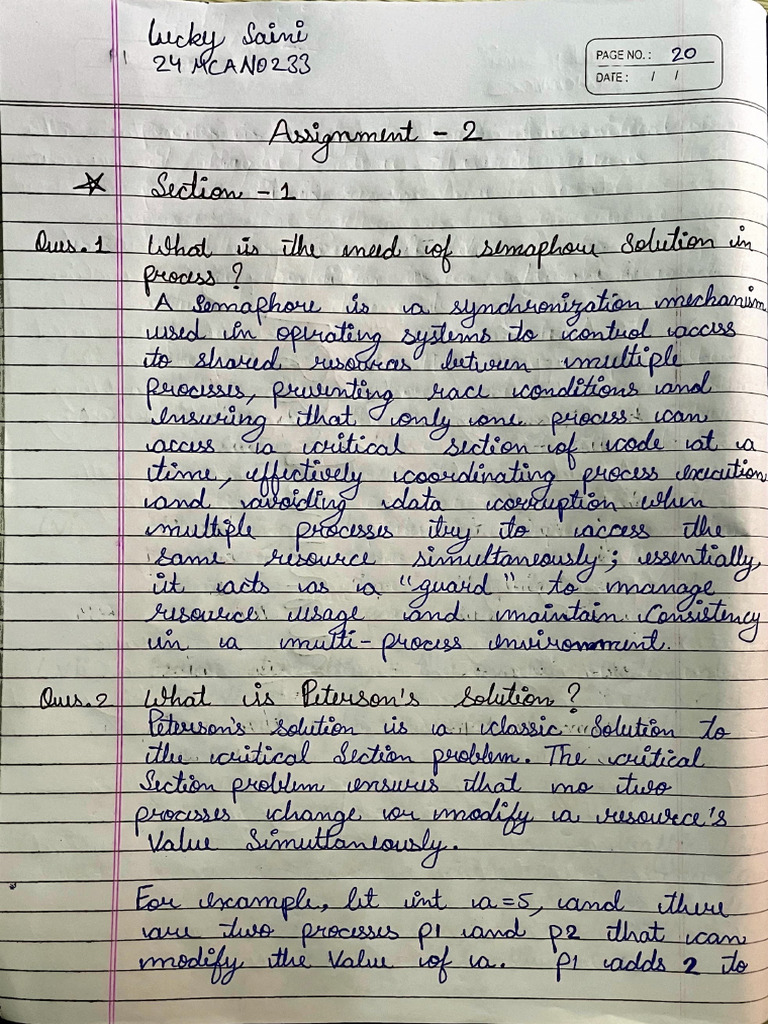 Lucky Saini
24MCAN0233
PAGE NO.: 20
DATE: / /
Assignment - 2
Section - 1
Ques. 1 What is the need of semaphore solution in
process ?
A Semaphore is a synchronization mechanism
used in operating systems to control access
to shared resources between multiple
processes, preventing race conditions and
ensuring that only one process can
access a critical section of code at a
time, effectively coordinating process execution
and avoiding data corruption when
multiple processes try to access the
same resource simultaneously; essentially,
it acts as a "guard" to manage
resource usage and maintain Consistency
in a multi-process environment.
Ques. 2 What is Peterson's Solution ?
Peterson's solution is a classic Solution to
the critical Section problem. The critical
Section problem ensures that no two
processes change or modify a resource's
Value Simultaneously.
For example, let int a=5, and there
are two processes p1 and p2 that can
modify the Value of a. p1 adds 2 to